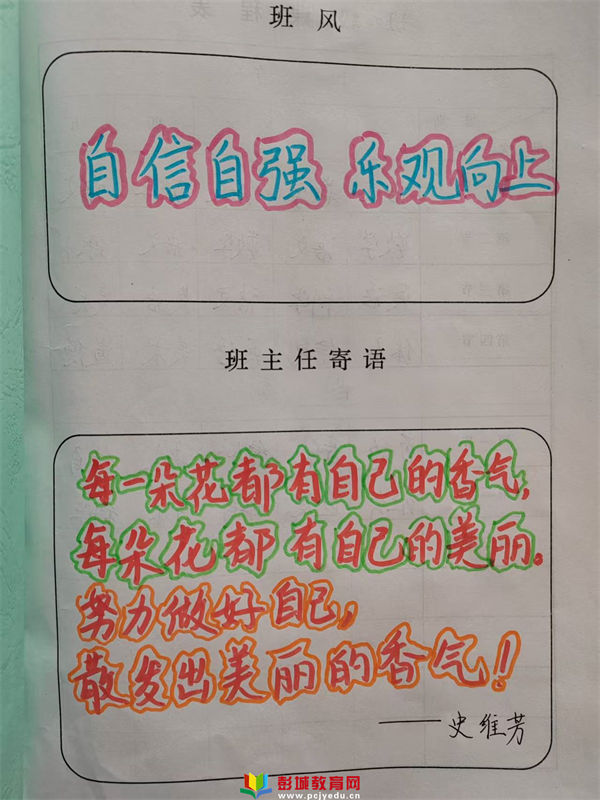 班风
自信自强 乐观向上
班主任寄语
每一朵花都有自己的香气,
每朵花都有自己的美丽。
努力做好自己,
散发出美丽的香气!
——史维芳
彭城教育网
www.pcjyedu.cn